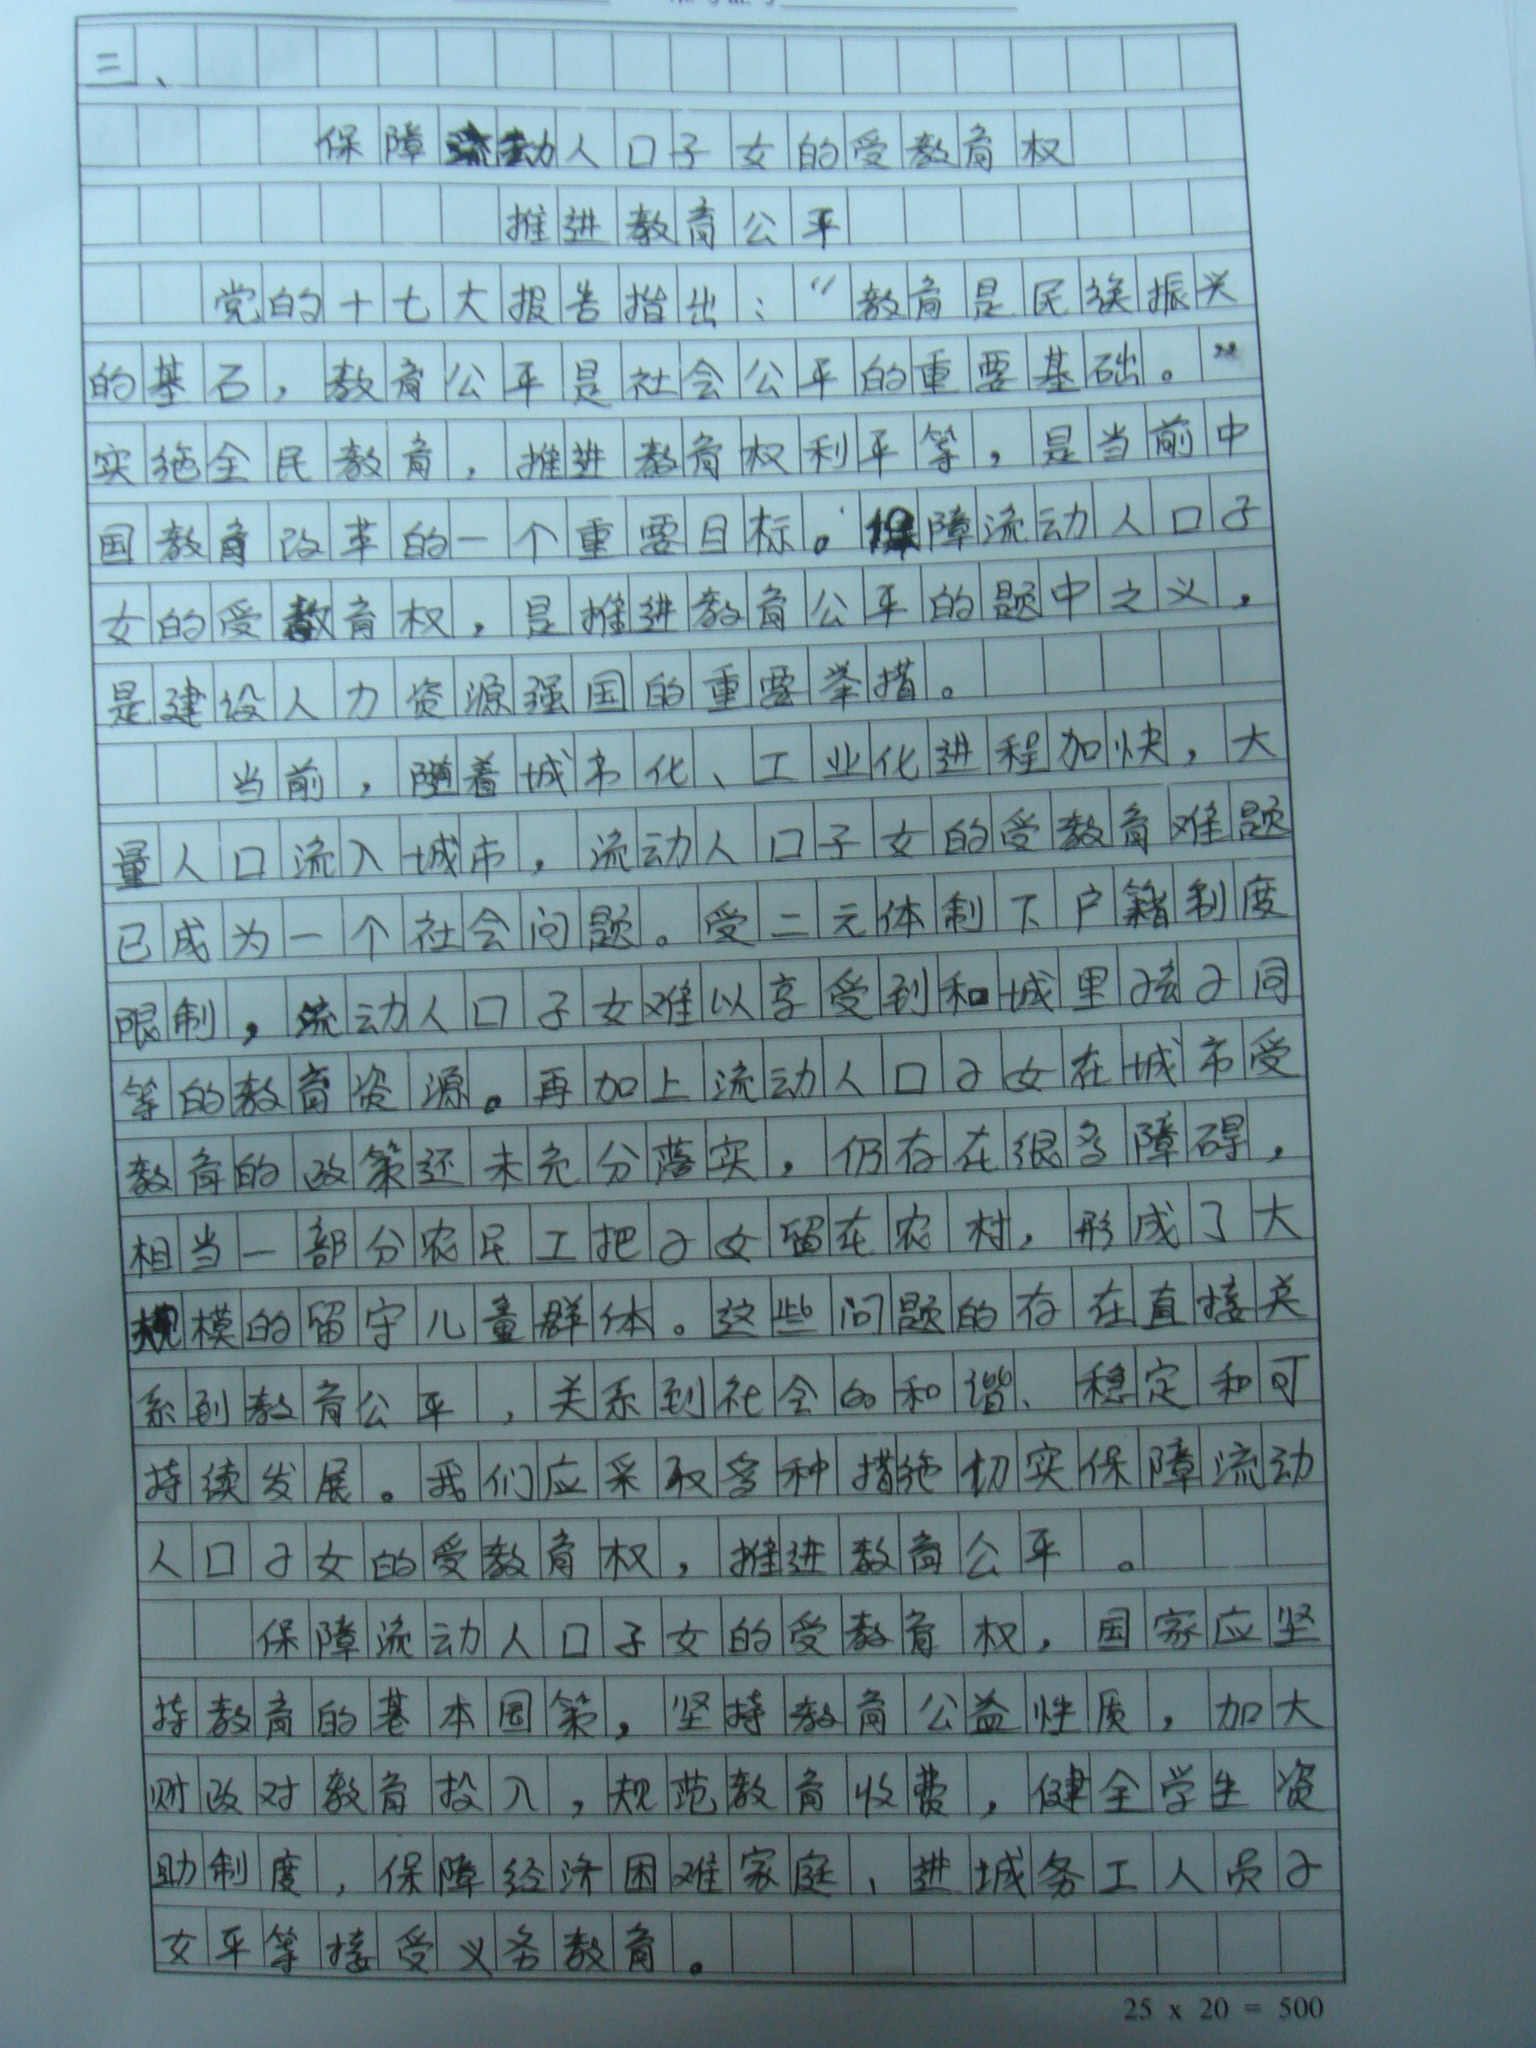 三、
保障流动人口子女的受教育权
推进教育公平
党的十七大报告指出：“教育是民族振兴
的基石，教育公平是社会公平的重要基础。”
实施全民教育，推进教育权利平等，是当前中
国教育改革的一个重要目标。保障流动人口子
女的受教育权，是推进教育公平的题中之义，
是建设人力资源强国的重要举措。
当前，随着城市化、工业化进程加快，大
量人口流入城市，流动人口子女的受教育难题
已成为一个社会问题。受二元体制下户籍制度
限制，流动人口子女难以享受到和城里孩子同
等的教育资源。再加上流动人口子女在城市受
教育的政策还未充分落实，仍存在很多障碍，
相当一部分农民工把子女留在农村，形成了大
规模的留守儿童群体。这些问题的存在直接关
系到教育公平，关系到社会的和谐、稳定和可
持续发展。我们应采取多种措施切实保障流动
人口子女的受教育权，推进教育公平。
保障流动人口子女的受教育权，国家应坚
持教育的基本国策，坚持教育公益性质，加大
财政对教育投入，规范教育收费，健全学生资
助制度，保障经济困难家庭、进城务工人员子
女平等接受义务教育。
25 x 20 = 500